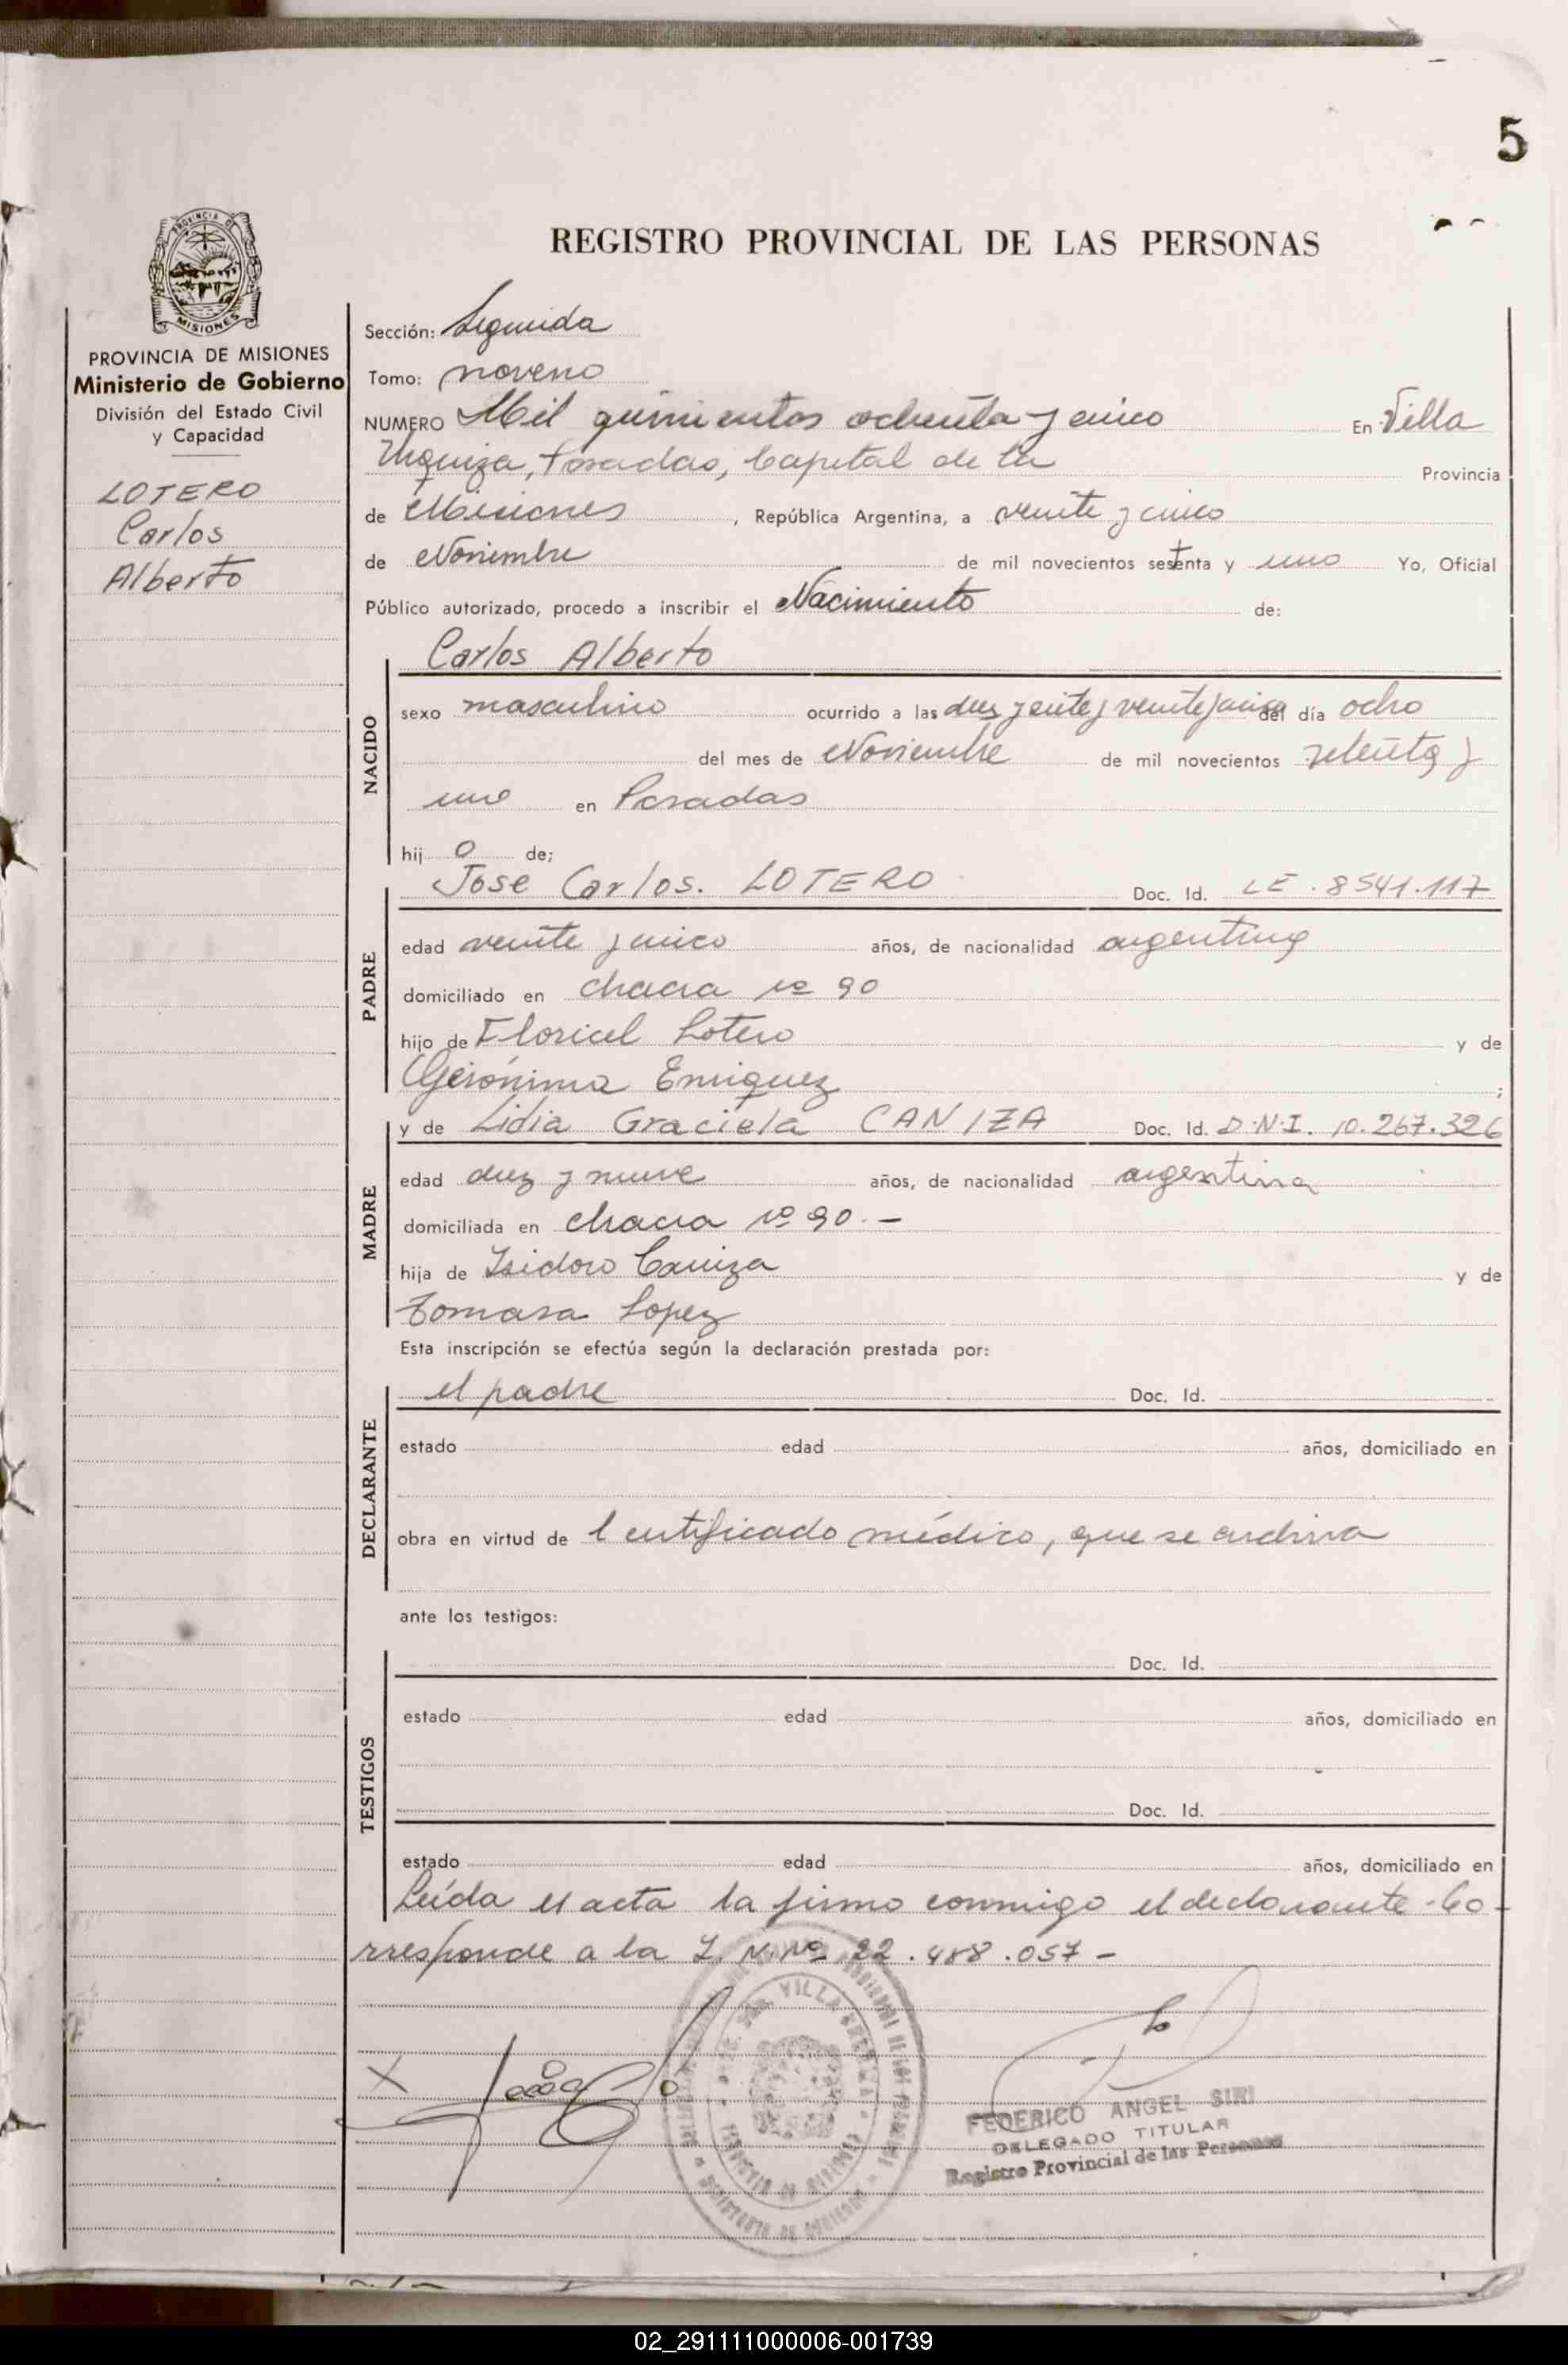 5
REGISTRO PROVINCIAL DE LAS PERSONAS
PROVINCIA DE
MISIONES
PROVINCIA DE MISIONES
Ministerio de Gobierno
División del Estado Civil
y Capacidad
LOTERO
Carlos
Alberto
Sección: Segunda
Tomo: noveno
NUMERO Mil quinientos ochenta y cinco En Villa
Urquiza, Posadas, Capital de la Provincia
de Misiones, República Argentina, a veinte y cinco
de Noviembre de mil novecientos setenta y uno Yo, Oficial
Público autorizado, procedo a inscribir el Nacimiento de:
NACIDO
Carlos Alberto
sexo masculino ocurrido a las diez y siete y veinte y cinco del día ocho
del mes de Noviembre de mil novecientos setenta y
uno en Posadas
hij o de;
PADRE
Jose Carlos. LOTERO Doc. Id. LE. 8541.117
edad veinte y cinco años, de nacionalidad argentina
domiciliado en chacra nº 90
hijo de Floricel Lotero y de
Gerónima Enriquez;
MADRE
y de Lidia Graciela CANIZA Doc. Id. D.N.I. 10.267.326
edad diez y nueve años, de nacionalidad argentina
domiciliada en chacra nº 90.-
hija de Isidoro Caniza y de
Tomasa Lopez
Esta inscripción se efectúa según la declaración prestada por:
DECLARANTE
el padre Doc. Id.
estado edad años, domiciliado en
obra en virtud de Certificado médico, que se archiva
ante los testigos:
TESTIGOS
Doc. Id.
estado edad años, domiciliado en
Doc. Id.
estado edad años, domiciliado en
Leída el acta la firma conmigo el declarante -Co-
rresponde a la L. N. Nº 22.488.057-
X
VILLA URQUIZA
PROVINCIA DE MISIONES
MINISTERIO DE GOBIERNO
FEDERICO ANGEL SIRI
DELEGADO TITULAR
Registro Provincial de las Personas
02_291111000006-001739